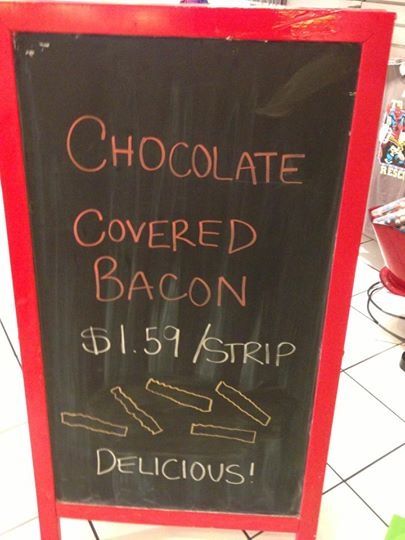 CHOCOLATE
COVERED
BACON
$1.59/STRIP
DELICIOUS!